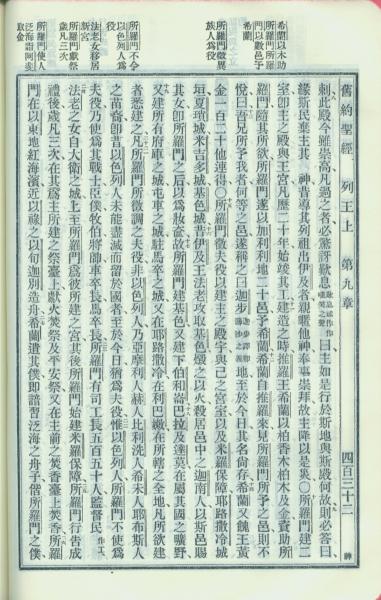 舊約聖經　列王上　第九章　四百三十二　神
希蘭以木助
所羅門所羅
門以數邑予
希蘭
所羅門徵異
族人為役
所羅門不令
以色列人為
役
法老女移居
新宮
所羅門獻祭
歲凡三次
所羅門使人
泛海詣阿妃
取金
刺此殿今雖崇高凡過之者必驚訝歎息曰主如是行於斯地與斯殿何故則必答曰
緣斯民棄主其神昔導其列祖出伊及者親暱他神奉事崇拜故主降以是災所羅門建二
室即主之殿與王宮凡歷二十年始竣其工建造之時推羅王希蘭以柏香木柏木及金資助所
羅門隨其所欲所羅門遂以加利利地二十邑予希蘭希蘭自推羅來見所羅門所予之邑則不
悅曰吾兄所予我者何等之邑遂稱之曰迦步地至於今日其名尚存希蘭又餽王黃
金一百二十他連得所羅門徵夫役以建主之殿宇與己之宮室以及米羅保障耶路撒冷城
垣夏瑣城米吉多城基色城昔伊及王法老攻取基色燬之以火殺居邑中之迦南人以斯邑賜
其女即所羅門之后以為妝奩故所羅門建基色又建下伯和崙巴拉及達莫在屬其國之曠野
又建所有府庫之城屯車之城駐馬卒之城又在耶路撒冷在利巴嫩在所轄之全地凡所欲建
者悉建之凡所羅門所徵調之夫役非以色列人乃亞摩利人赫人比利洗人希未人耶布斯人
之苗裔即昔以色列人未能盡滅而留於國者至於今日猶為夫役惟以色列人所羅門不使為
夫役乃使為其戰士臣僕牧伯將帥車卒長馬卒長所羅門有司工長五百五十人監督民作工
法老之女自大衛之城上至所羅門為彼所建之宮其後所羅門始建米羅保障所羅門行告成
禮後歲凡三次在其為主所建之祭臺上獻火焚祭及平安祭又在主前之焚香臺上焚香所羅
門在以東地紅海濱近以祿之以旬迦別造舟希蘭遣其僕即諳習泛海之舟子偕所羅門之僕